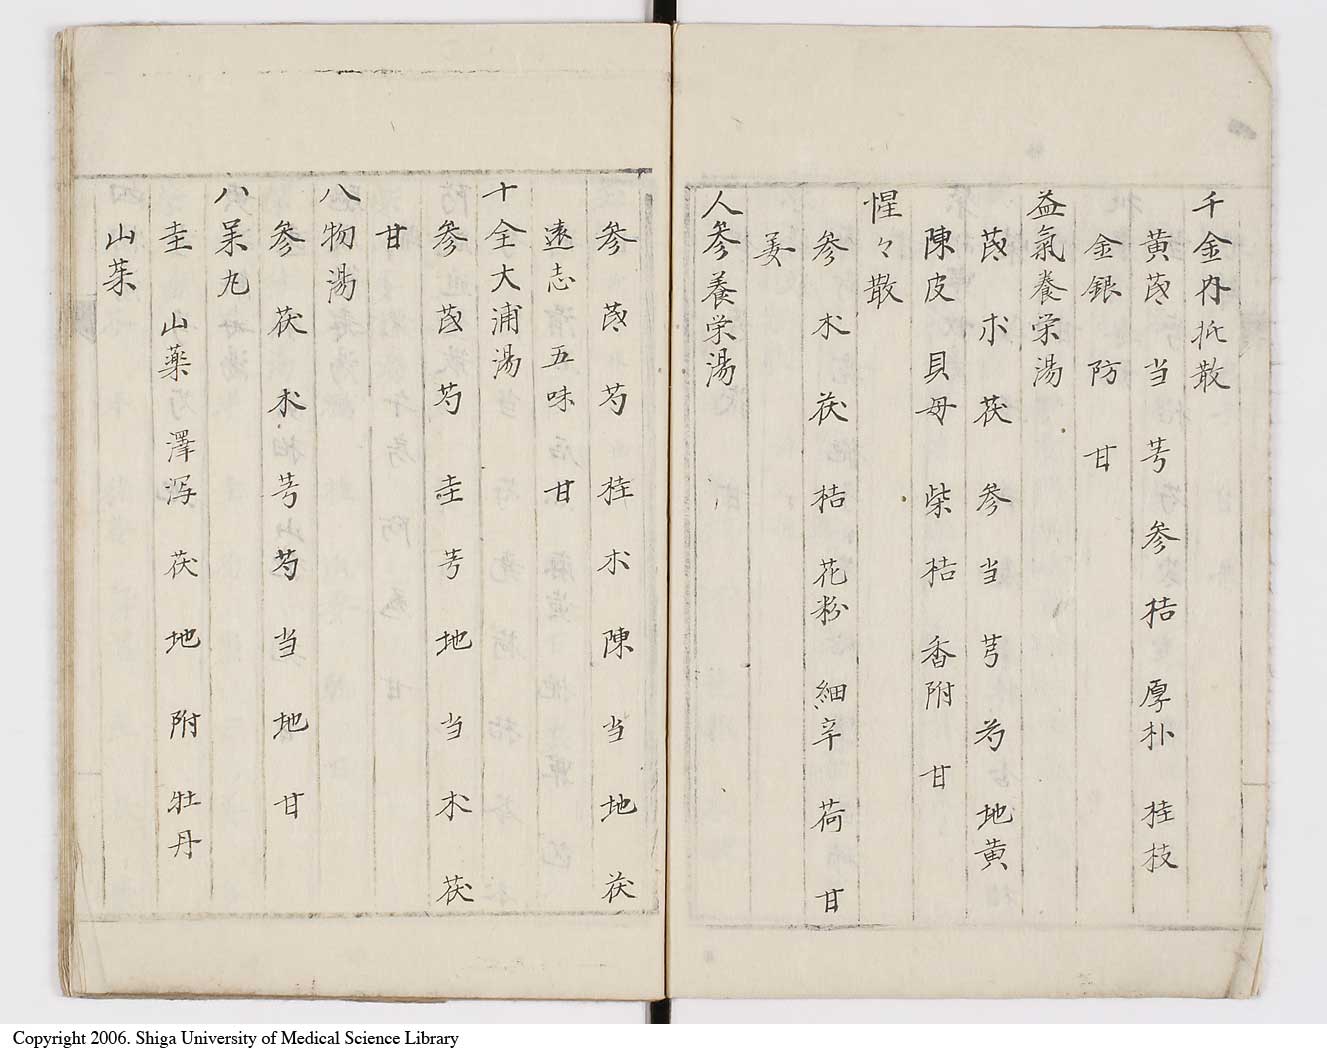 千金内托散
黄芪当芎参桔厚朴桂枝
金銀防甘
益氣養栄湯
芪朮茯参当芎芍地黄
陳皮貝母柴桔香附甘
惺々散
参朮茯桔花粉細辛荷甘
姜
人参養栄湯
参芪芍桂朮陳当地茯
遠志五味甘
十全大浦湯
参芪芍圭芎地当朮茯
甘
八物湯
参茯朮芎芍当地甘
八呆丸
圭山薬澤泻茯地附牡丹
山茱
Copyright 2006. Shiga University of Medical Science Library